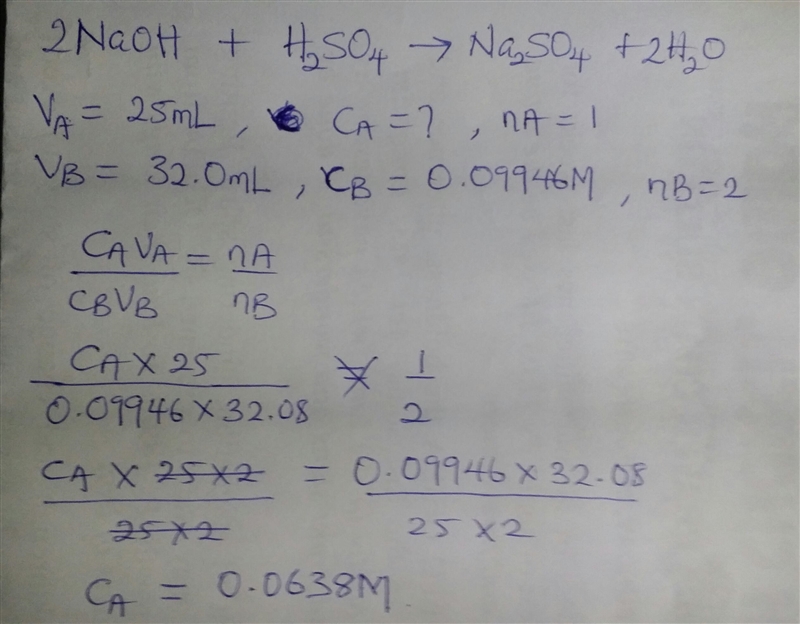 2NaOH + H₂SO₄ → Na₂SO₄ + 2H₂O
VA = 25mL, CA = ?, nA = 1
VB = 32.0mL, CB = 0.09946M, nB = 2
CAVA = nA
CBVB nB
CA × 25 = 1
0.09946 × 32.08 2
CA × 25×2 = 0.09946 × 32.08
25×2 25×2
CA = 0.0638M